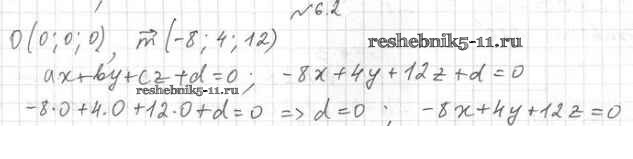 №6.2
O(0;0;0), m⃗(-8;4;12)
reshebnik5-11.ru
ax+by+cz+d=0; -8x+4y+12z+d=0
reshebnik5-11.ru
-8·0+4·0+12·0+d=0 => d=0; -8x+4y+12z=0